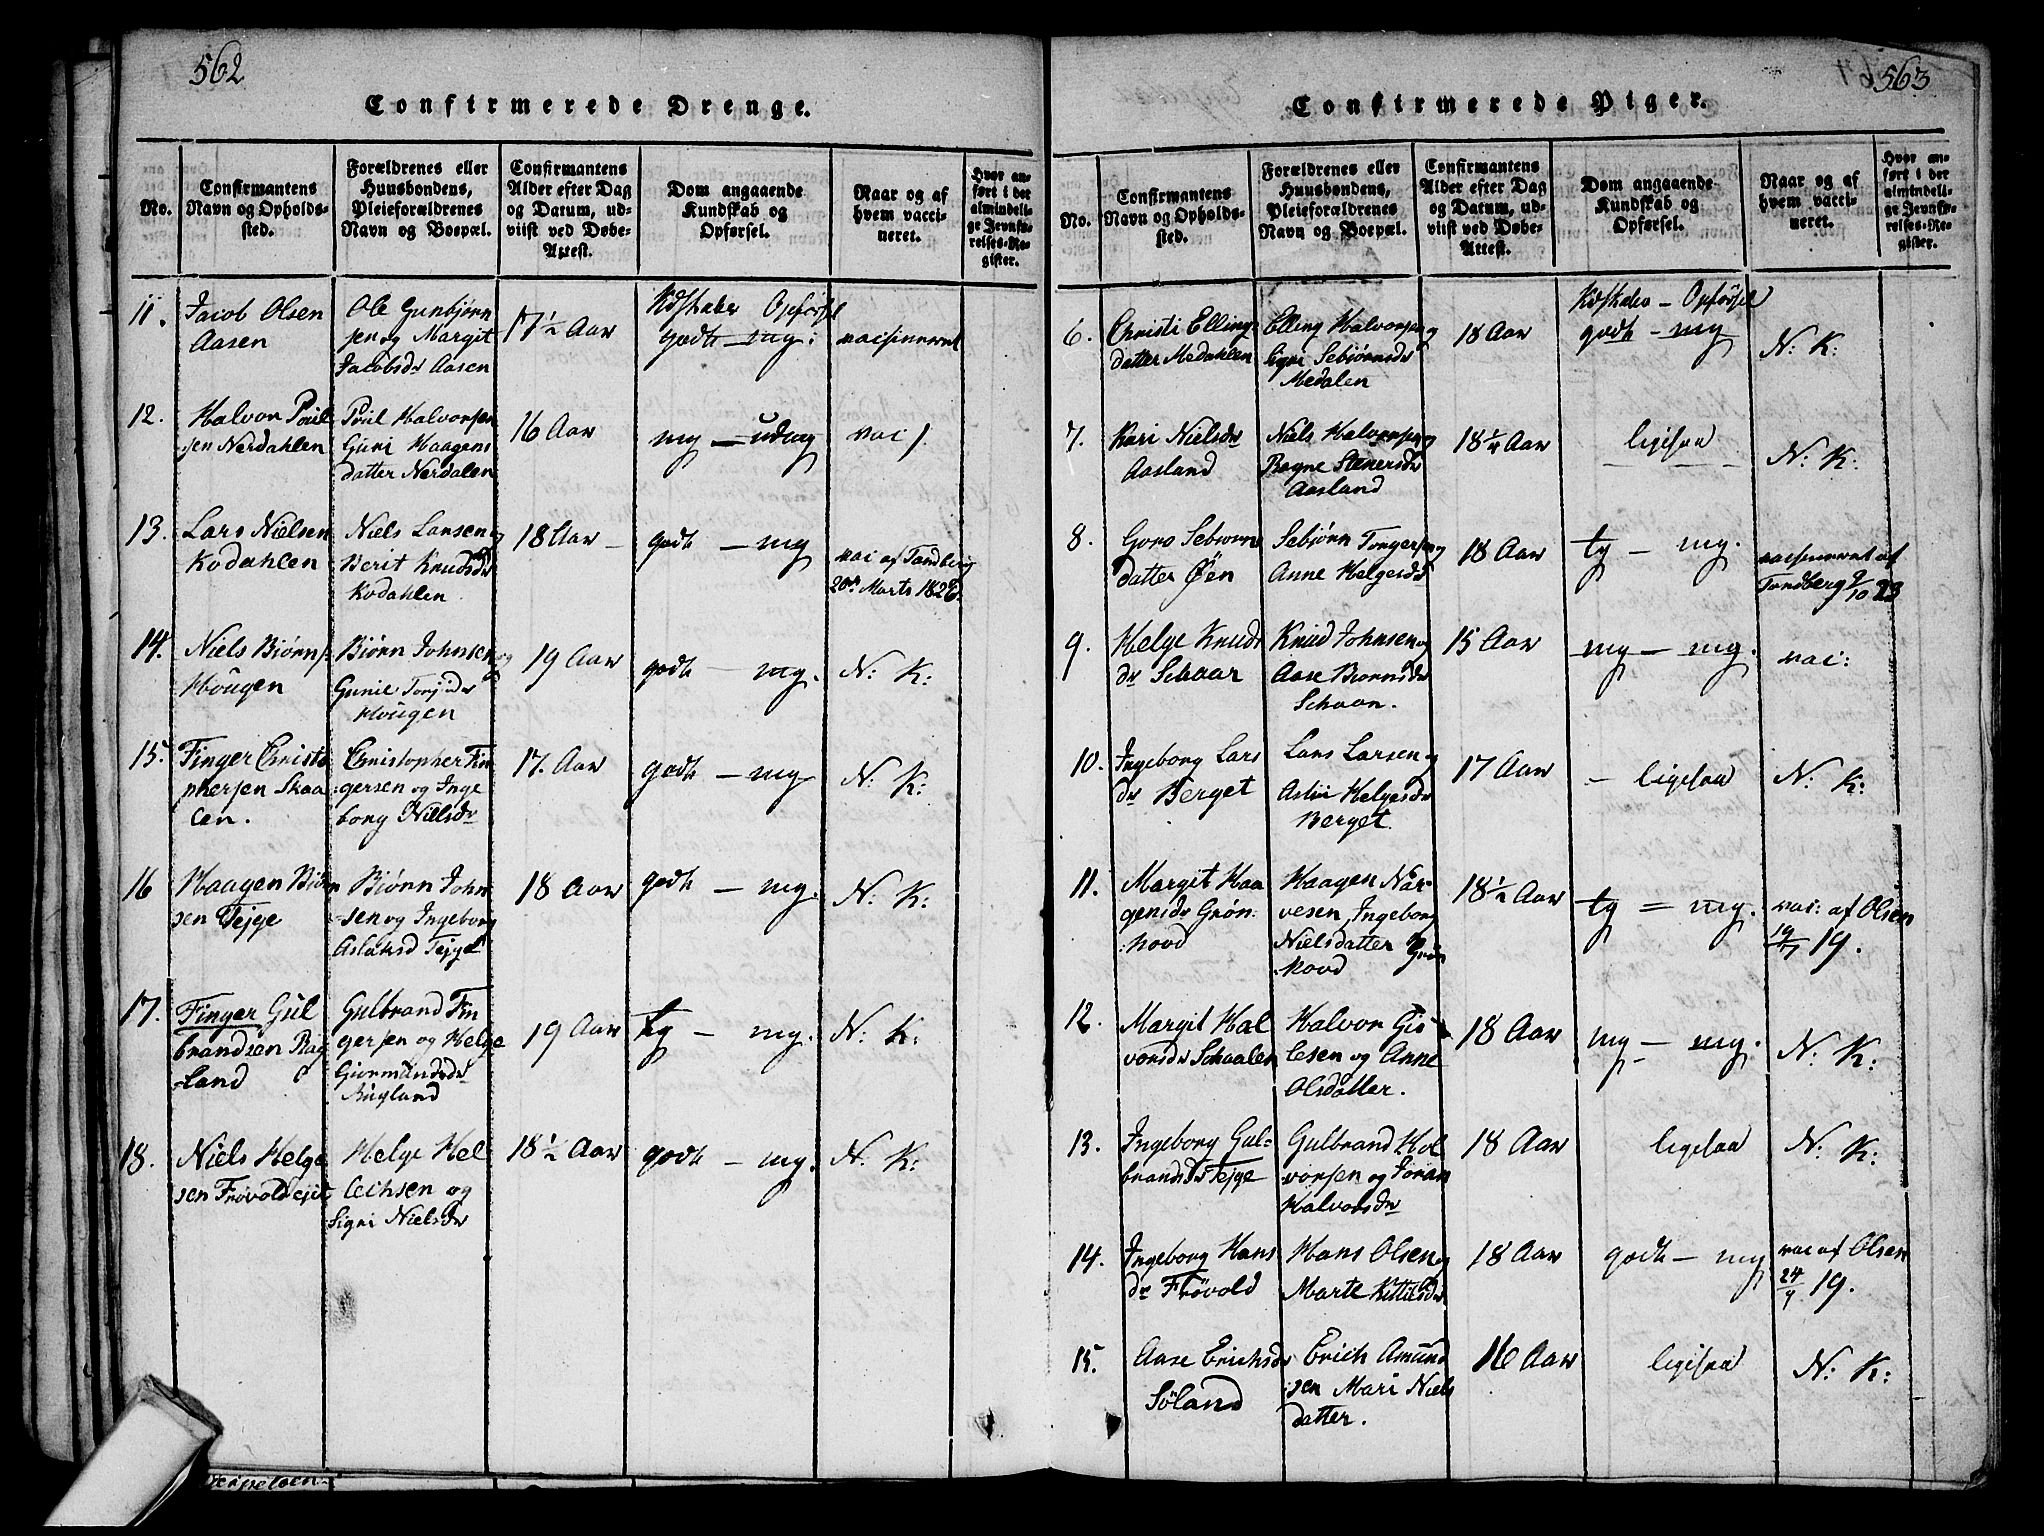 562
Confirmerede Drenge.
No.
Confirmantens
Navn og Opholds-
sted.
Forældrenes eller
Huusbondens,
Pleieforældrenes
Navn og Bopæl.
Confirmantens
Alder efter Dag
og Datum, ud-
viist ved Døbe-
Attest.
Dom angaaende
Kundskab og
Opførsel.
Naar og af
hvem vacci-
neret.
Hvor an-
ført i det
almindeli-
ge Jevnfø-
relses-Re-
gister.
11.
Jacob Olsen
Aasen
Ole Gunbjørn
sen og Margit
Jacobsdr Aasen
17½ Aar
Kdskaber Opførsel
godt — mg:
vacsineret
12.
Halvor Poul
sen Nerdahlen
Poul Halvorsen
Guri Haagens
datter Nerdalen
16 Aar
mg — udmg
vac
13.
Lars Nielsen
Kodahlen
Niels Larsen og
Berit Knudsdr
Kodahlen
18 Aar
godt — mg
vac af Tandberg
20de Marts 1826.
14.
Niels Biørns
Hougen
Biørn Johnsen og
Gunil Torjidr
Hougen
19 Aar
godt — mg.
N: K:
15.
Finger Christo
phersen Skaa
len.
Christopher Fin
gersen og Inge
borg Nielsdr
17. Aar
godt — mg
N: K:
16
Haagen Biørn
sen Tejge
Biørn John
sen og Ingeborg
Aslaksd Tejge
18 Aar
godt — mg.
N: K:
17.
Finger Gul
brandsen Rug
land
Gulbrand Fin
gersen og Helge
Giermundsdr
Rugland
19 Aar
tg — mg.
N: K:
18.
Niels Helge
sen Frøvold ejet
Helge Hel
lechsen og
Sigri Nielsdr
18½ Aar
godt — mg.
N: K:
563
Confirmerede Piger.
No.
Confirmantens
Navn og Opholds-
sted.
Forældrenes eller
Huusbondens,
Pleieforældrenes
Navn og Bopæl.
Confirmantens
Alder efter Dag
og Datum, ud-
viist ved Døbe-
Attest.
Dom angaaende
Kundskab og
Opførsel.
Naar og af
hvem vacci-
neret.
Hvor an-
ført i det
almindeli-
ge Jevnfø-
relses-Re-
gister.
6.
Christi Ellings
datter Medahlen
Elling Halvorsen og
Sigri Sebiørnsdr
Medalen
18 Aar
Kdskaber — Opførsel
godt — mg
N: K:
7.
Kari Nielsdr
Aasland
Niels Halvorsen og
Bagne Stenersdr
Aasland
18¼ Aar
ligesaa
N: K:
8.
Goro Sebiørns
datter Øen
Sebiørn Torgersen og
Anne Helgesdr
18 Aar
tg — mg.
vacsineret af
Tandberg 9/10 23
9.
Helge Knuds
dr Schaar
Knud Johnsen og
Aase Biørnsdr
Schaan.
15 Aar
mg — mg.
vac:
10.
Ingeborg Lars
dr Berget
Lars Larsen og
Astri Helgesdr
Berget
17 Aar
— ligesaa
N: K:
11.
Margit Haa
gensdr Grøn:
hovd
Haagen Nar-
vesen, Ingeborg
Nielsdatter Grøn
hovd
18½ Aar
tg = mg.
vac: af Olsen
19/7 19.
12.
Margit Hal
vorsdr Schaalen
Halvor Gis
lesen og Anne
Olsdatter.
18 Aar
mg — mg.
N: K:
13.
Ingeborg Gul-
brandsdr Tejge
Gulbrand Hal
vorsen og Joran
Halvorsdr
18 Aar
ligesaa
N: K:
14.
Ingeborg Hans
dr Frøvold
Hans Olsen og
Marte Kittilsdr
18 Aar
godt — mg
vac af Olsen
24/9 19.
15.
Aase Erichsdr
Søland
Erich Amund
sen Mari Niels
datter.
16 Aar
ligesaa
N: K: